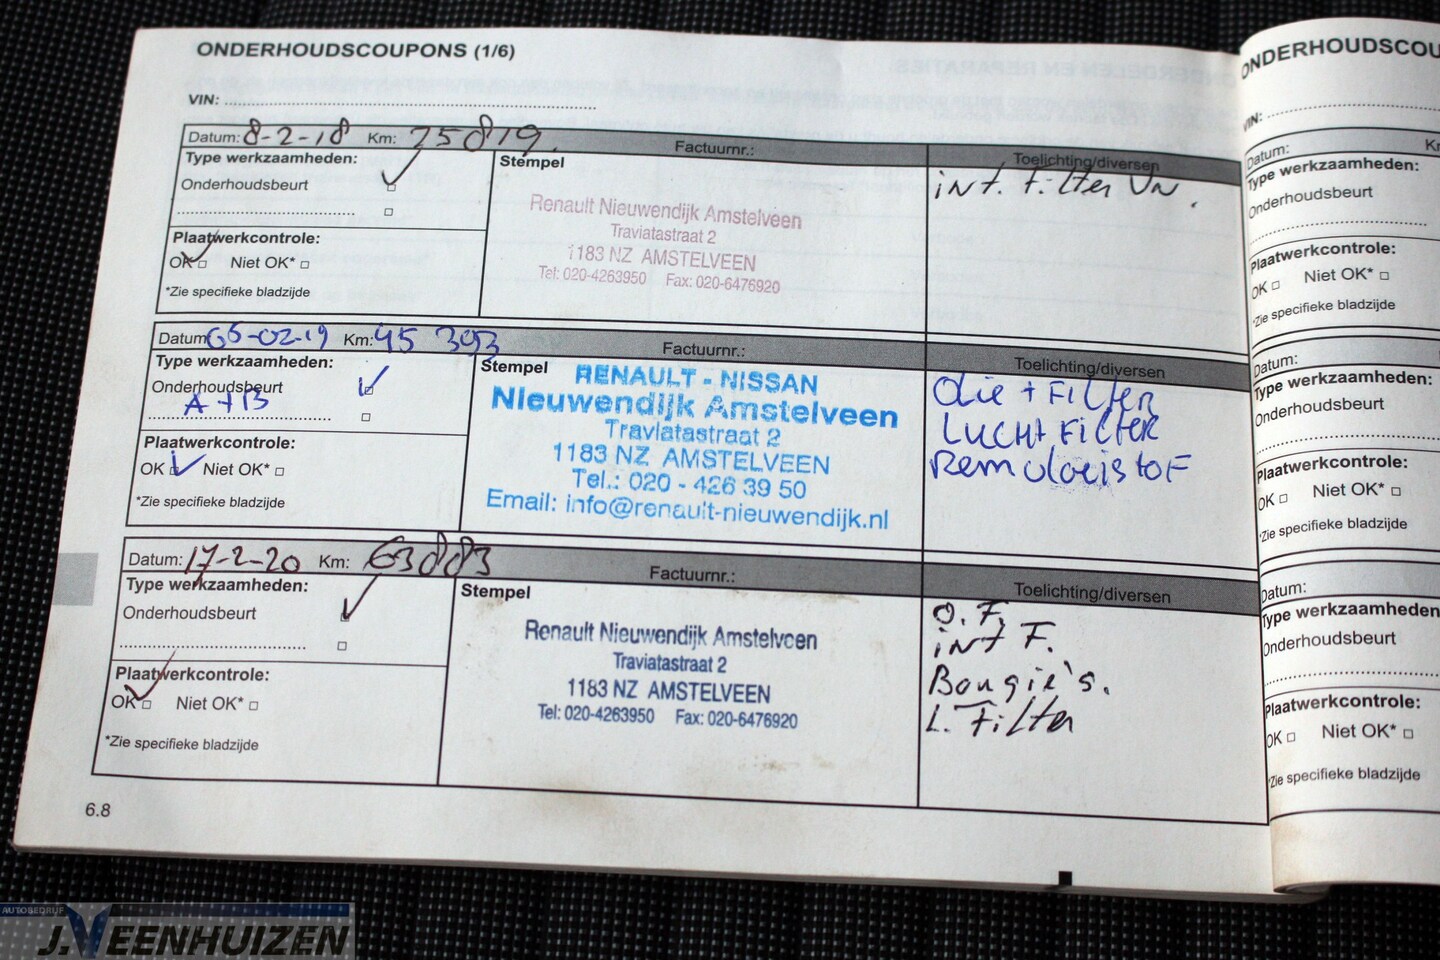 ONDERHOUDSCOUPONS (1/6)
VIN:
Datum: 8-2-18 Km: 25819. Factuurnr.: Toelichting/diversen
Type werkzaamheden:
Stempel
Onderhoudsbeurt
int. Filter Vn.
Plaatwerkcontrole:
OK Niet OK*
*Zie specifieke bladzijde
Renault Nieuwendijk Amstelveen
Traviatastraat 2
1183 NZ AMSTELVEEN
Tel: 020-4263950 Fax: 020-6476920
Datum: 05-02-19 Km: 45 393 Factuurnr.: Toelichting/diversen
Type werkzaamheden:
Stempel
Onderhoudsbeurt
A+B
Plaatwerkcontrole:
OK Niet OK*
*Zie specifieke bladzijde
RENAULT - NISSAN
Nieuwendijk Amstelveen
Traviatastraat 2
1183 NZ AMSTELVEEN
Tel.: 020 - 426 39 50
Email: info@renault-nieuwendijk.nl
Olie + Filter
Lucht Filter
Remvloeistof
Datum: 17-2-20 Km: 63883 Factuurnr.: Toelichting/diversen
Type werkzaamheden:
Stempel
Onderhoudsbeurt
Plaatwerkcontrole:
OK Niet OK*
*Zie specifieke bladzijde
Renault Nieuwendijk Amstelveen
Traviatastraat 2
1183 NZ AMSTELVEEN
Tel: 020-4263950 Fax: 020-6476920
O.F.
int F.
Bougie's.
L. Filter
6.8
ONDERHOUDSCOU
VIN:
Datum:
Type werkzaamheden:
Onderhoudsbeurt
Plaatwerkcontrole:
OK Niet OK*
*Zie specifieke bladzijde
Datum:
Type werkzaamheden:
Onderhoudsbeurt
Plaatwerkcontrole:
OK Niet OK*
*Zie specifieke bladzijde
Datum:
Type werkzaamheden
Onderhoudsbeurt
Plaatwerkcontrole:
OK Niet OK*
*Zie specifieke bladzijde
AUTOBEDRIJF
J.VEENHUIZEN